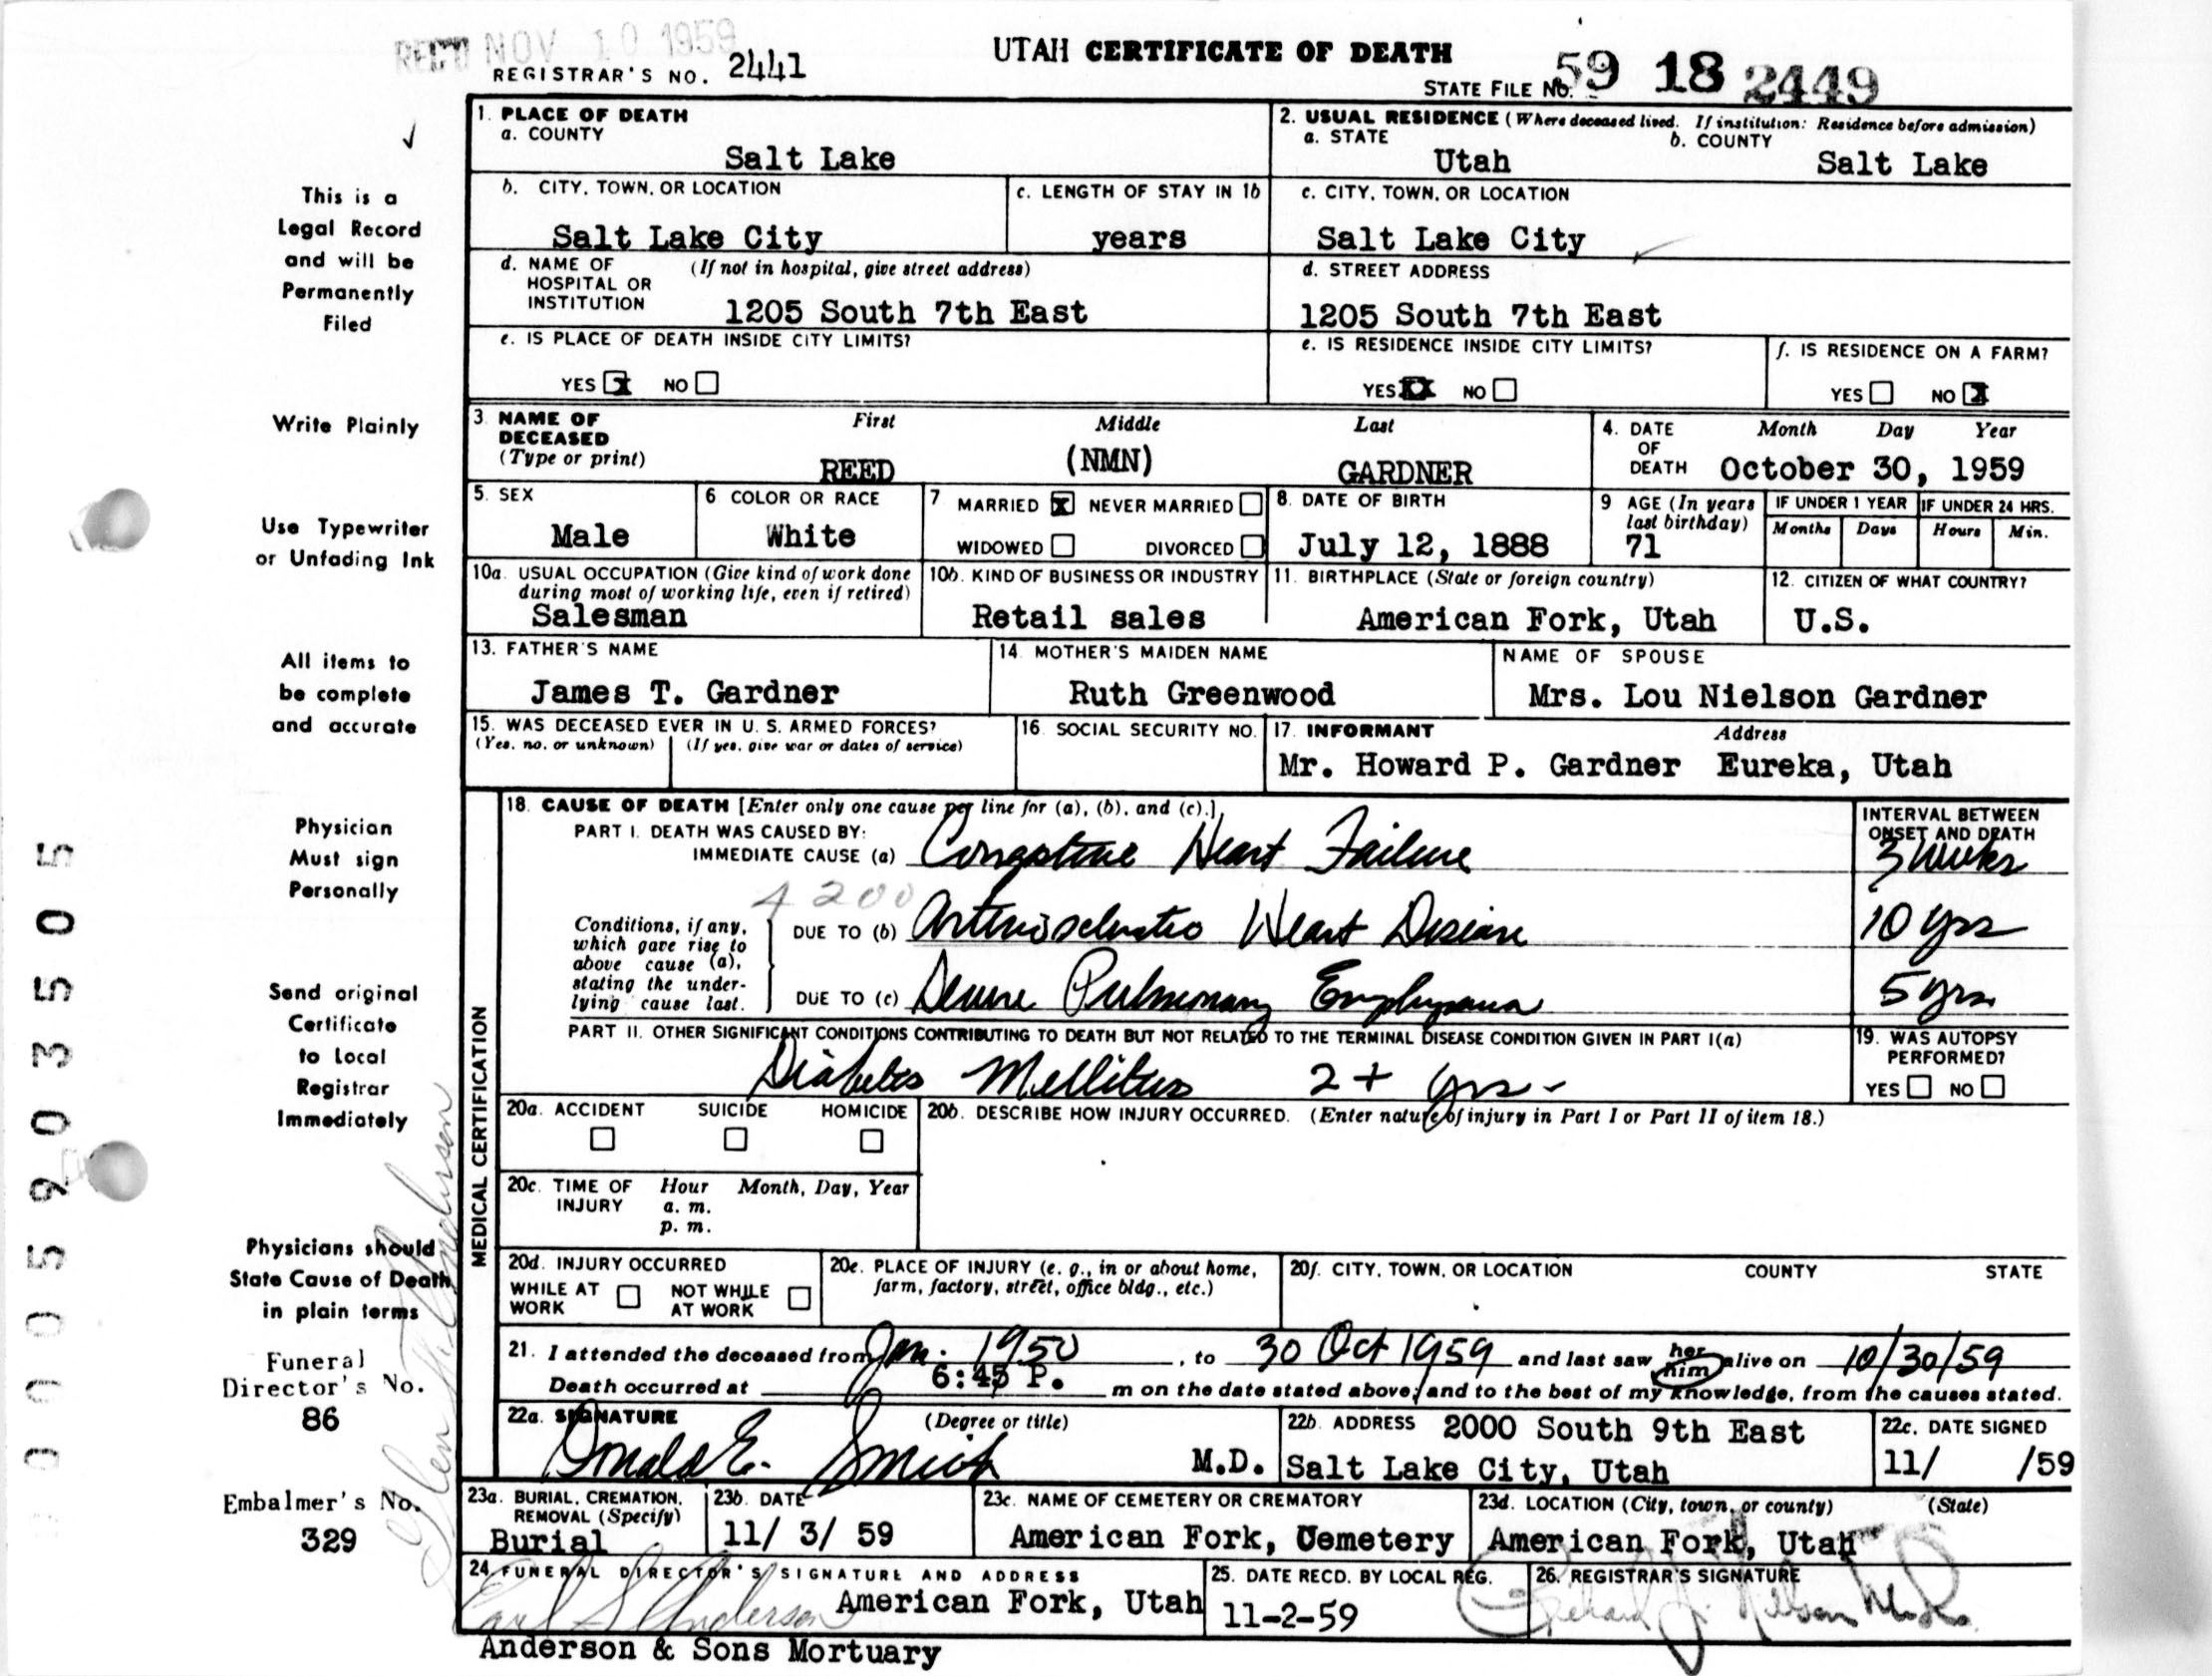 REC'D NOV 10 1959
UTAH CERTIFICATE OF DEATH
REGISTRAR'S NO. 2441
STATE FILE NO. 59 18 2449
This is a
Legal Record
and will be
Permanently
Filed
Write Plainly
Use Typewriter
or Unfading Ink
All items to
be complete
and accurate
Physician
Must sign
Personally
Send original
Certificate
to Local
Registrar
Immediately
Physicians should
State Cause of Death
in plain terms
Funeral
Director's No.
86
Embalmer's No.
329
1. PLACE OF DEATH
a. COUNTY
Salt Lake
2. USUAL RESIDENCE (Where deceased lived. If institution: Residence before admission)
a. STATE b. COUNTY
Utah Salt Lake
b. CITY, TOWN, OR LOCATION
Salt Lake City
c. LENGTH OF STAY IN 1b
years
c. CITY, TOWN, OR LOCATION
Salt Lake City
d. NAME OF (If not in hospital, give street address)
HOSPITAL OR
INSTITUTION 1205 South 7th East
d. STREET ADDRESS
1205 South 7th East
e. IS PLACE OF DEATH INSIDE CITY LIMITS?
YES X NO
e. IS RESIDENCE INSIDE CITY LIMITS?
YES X NO
f. IS RESIDENCE ON A FARM?
YES NO X
3. NAME OF First Middle Last
DECEASED
(Type or print) REED (NMN) GARDNER
4. DATE Month Day Year
OF
DEATH October 30, 1959
5. SEX
Male
6 COLOR OR RACE
White
7 MARRIED X NEVER MARRIED
WIDOWED DIVORCED
8. DATE OF BIRTH
July 12, 1888
9 AGE (In years
last birthday)
71
IF UNDER 1 YEAR
Months Days
IF UNDER 24 HRS.
Hours Min.
10a. USUAL OCCUPATION (Give kind of work done
during most of working life, even if retired)
Salesman
10b. KIND OF BUSINESS OR INDUSTRY
Retail sales
11. BIRTHPLACE (State or foreign country)
American Fork, Utah
12. CITIZEN OF WHAT COUNTRY?
U.S.
13. FATHER'S NAME
James T. Gardner
14. MOTHER'S MAIDEN NAME
Ruth Greenwood
NAME OF SPOUSE
Mrs. Lou Nielson Gardner
15. WAS DECEASED EVER IN U. S. ARMED FORCES?
(Yes, no, or unknown) (If yes, give war or dates of service)
16. SOCIAL SECURITY NO.
17. INFORMANT Address
Mr. Howard P. Gardner Eureka, Utah
MEDICAL CERTIFICATION
18. CAUSE OF DEATH [Enter only one cause per line for (a), (b), and (c).]
PART I. DEATH WAS CAUSED BY:
IMMEDIATE CAUSE (a) Congestive Heart Failure
INTERVAL BETWEEN
ONSET AND DEATH
3 weeks
4200
Conditions, if any,
which gave rise to
above cause (a),
stating the under-
lying cause last.
DUE TO (b) Arteriosclerotic Heart Disease
10 yrs
DUE TO (c) Severe Pulmonary Emphysema
5 yrs
PART II. OTHER SIGNIFICANT CONDITIONS CONTRIBUTING TO DEATH BUT NOT RELATED TO THE TERMINAL DISEASE CONDITION GIVEN IN PART I(a)
Diabetes Mellitus 2 + yrs -
19. WAS AUTOPSY
PERFORMED?
YES NO
20a. ACCIDENT SUICIDE HOMICIDE
20b. DESCRIBE HOW INJURY OCCURRED. (Enter nature of injury in Part I or Part II of item 18.)
20c. TIME OF Hour Month, Day, Year
INJURY a. m.
p. m.
20d. INJURY OCCURRED
WHILE AT WORK NOT WHILE AT WORK
20e. PLACE OF INJURY (e. g., in or about home,
farm, factory, street, office bldg., etc.)
20f. CITY, TOWN, OR LOCATION COUNTY STATE
21. I attended the deceased from Jan. 1950, to 30 Oct 1959 and last saw her him alive on 10/30/59
Death occurred at 6:45 P. m on the date stated above; and to the best of my knowledge, from the causes stated.
22a. SIGNATURE (Degree or title)
Donald E. Smith M.D.
22b. ADDRESS 2000 South 9th East
Salt Lake City, Utah
22c. DATE SIGNED
11/ /59
23a. BURIAL, CREMATION,
REMOVAL (Specify)
Burial
23b. DATE
11/ 3/ 59
23c. NAME OF CEMETERY OR CREMATORY
American Fork, Cemetery
23d. LOCATION (City, town, or county) (State)
American Fork, Utah
24. FUNERAL DIRECTOR'S SIGNATURE AND ADDRESS
Earl S. Anderson American Fork, Utah
Anderson & Sons Mortuary
25. DATE RECD. BY LOCAL REG.
11-2-59
26. REGISTRAR'S SIGNATURE